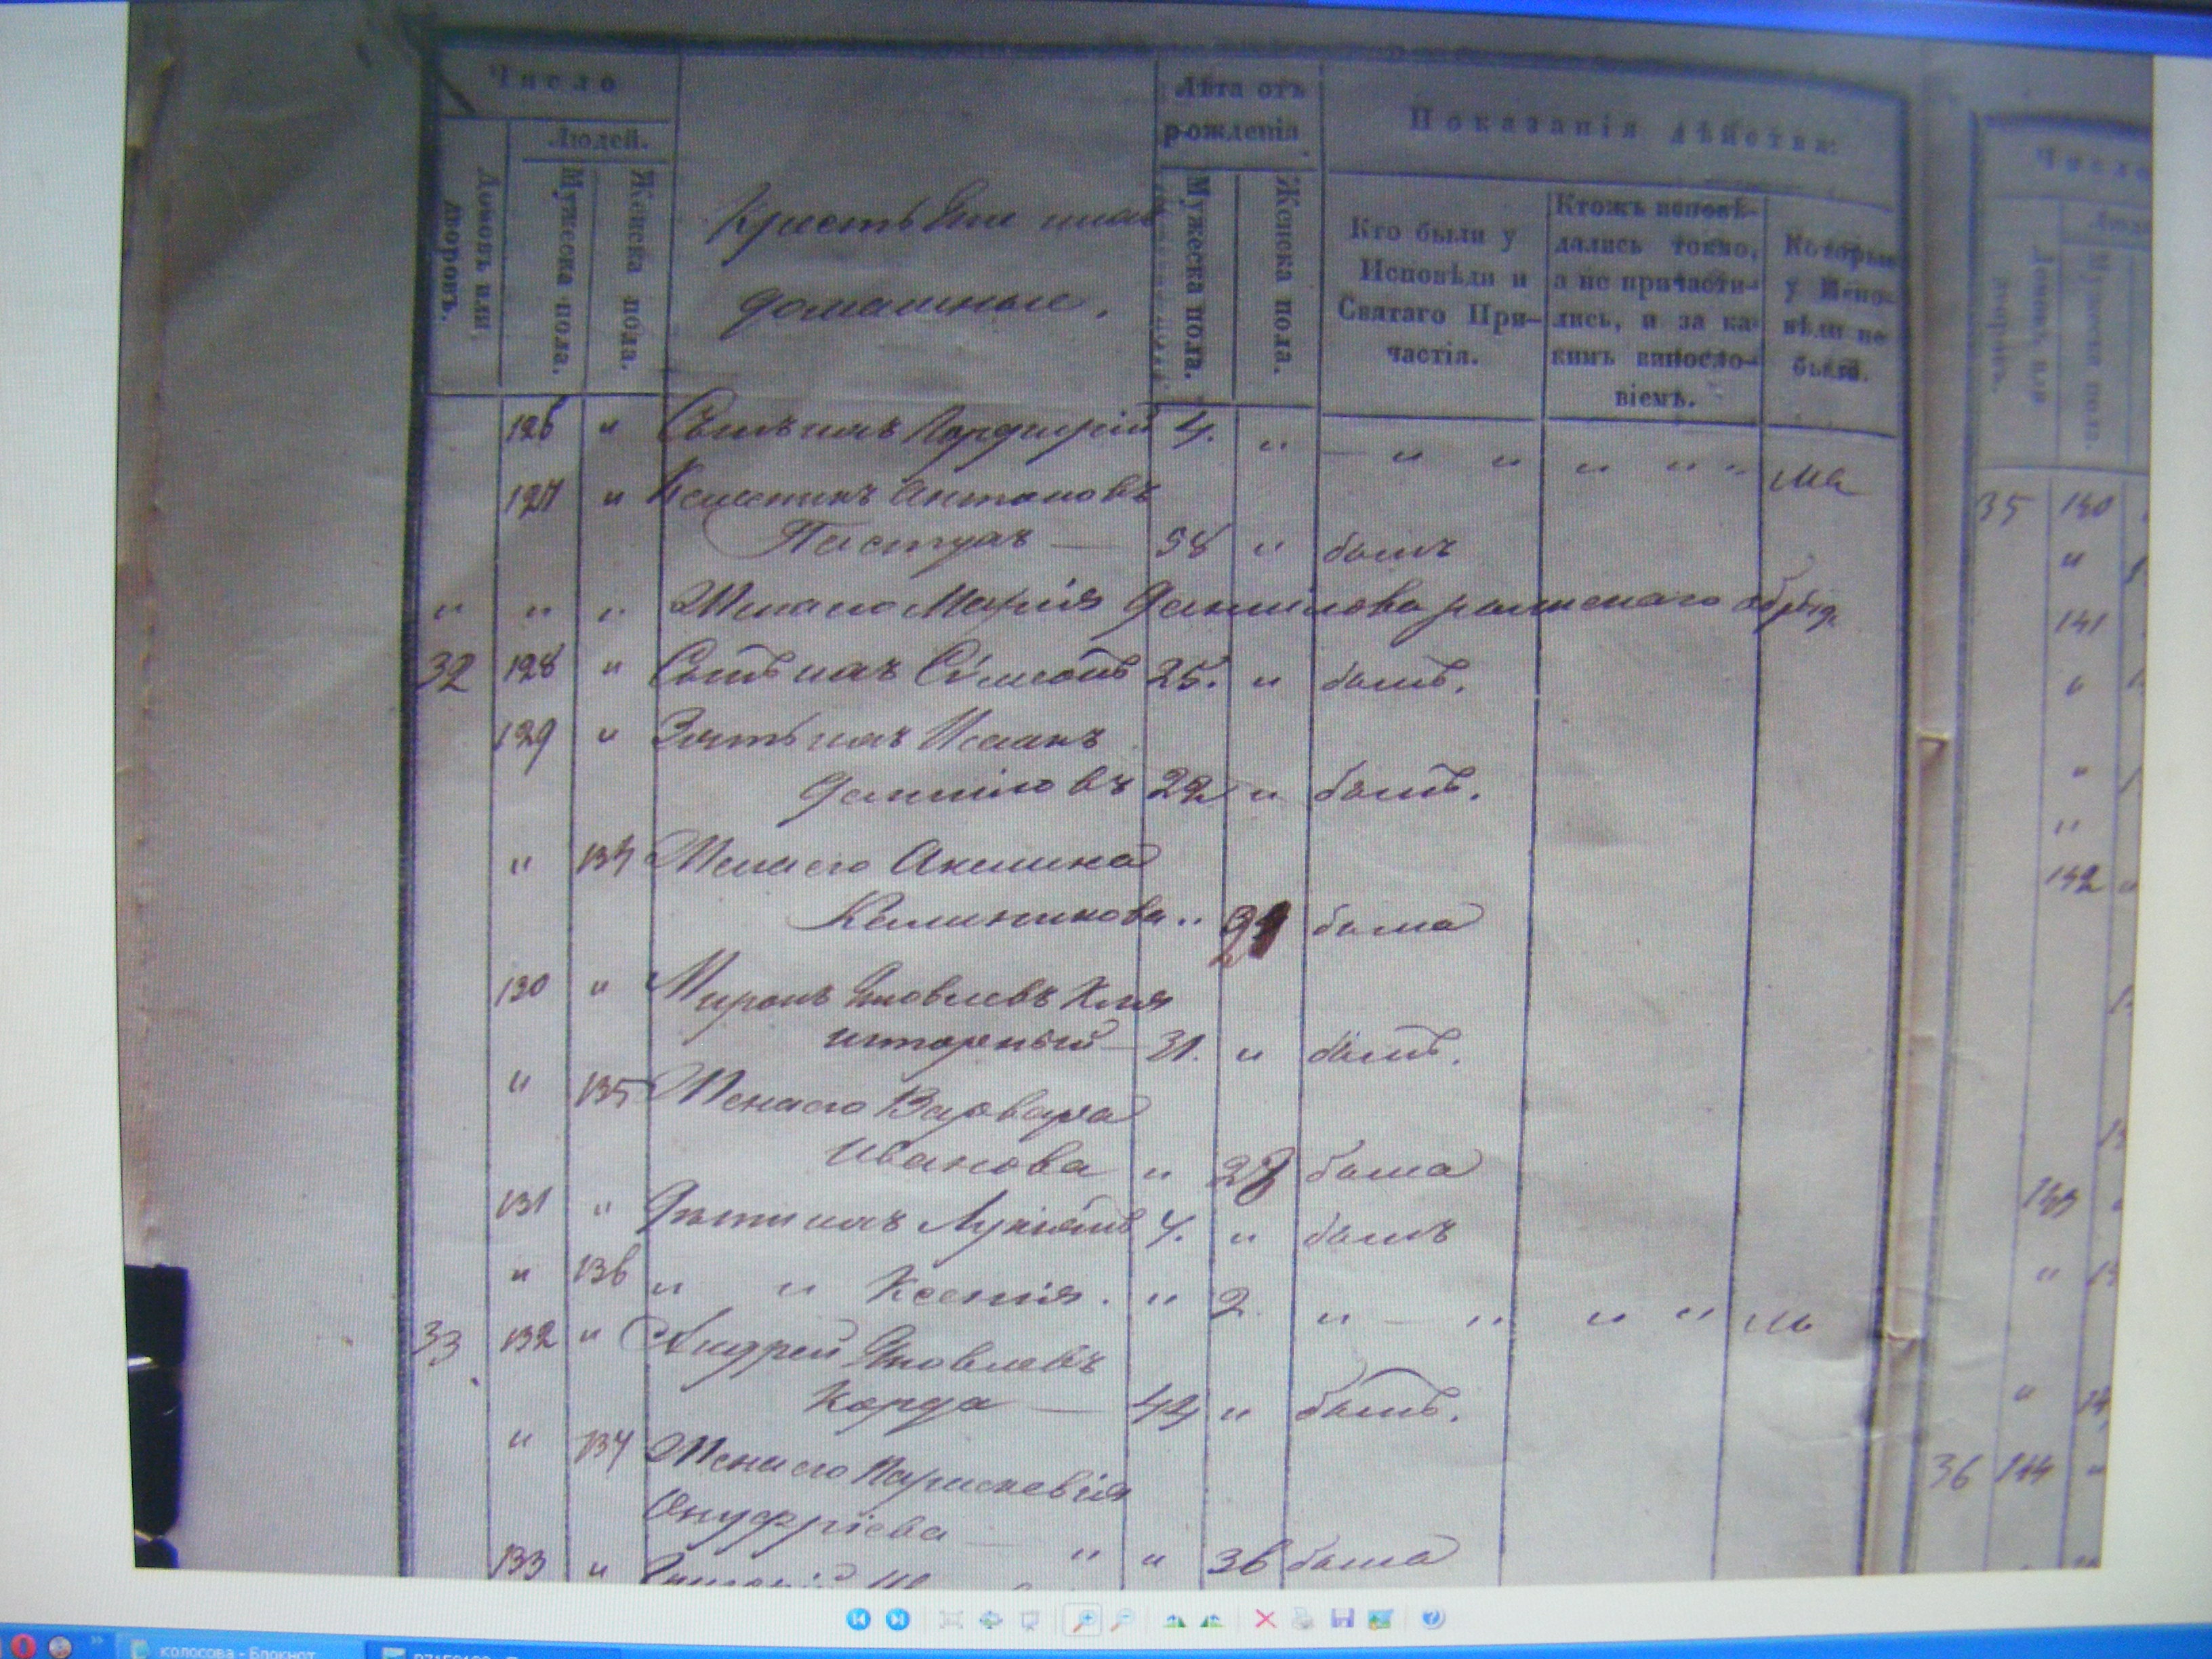 Число
Людей.
Домовъ или дворовъ.
Мужеска пола.
Женска пола.
домашные.
Лѣта отъ рожденія
Мужеска пола.
Женска пола.
Показанія дѣйства:
Кто были у Исповѣди и Святаго Причастія.
Ктожъ исповѣдались токмо, а не причастились, и за какимъ винословіемъ.
Которые у Исповѣди не были.
126 " Сынъ ихъ Порфирій 4. " — " " " " " мл
127 " Антоновъ
Пастухъ — 58 " былъ
" " " Жена его Марія Даниилова римскаго обряд.
32 128 " Сынъ ихъ Сѵмеонъ 25. " былъ.
129 " Зять ихъ Исаакъ
Данииловъ 22 " былъ.
" 134 Жена его Акилина
" былa
130 " Миронъ Яковлевъ
31. " былъ.
" 135 Жена его Варвара
Иванова " была
131 " Дѣти ихъ Лукіянъ 4. " былъ
" 136 " " Ксенія. " 2. " — " " " мл
33 132 " Андрей Яковлевъ
Корда — 44 " былъ.
" 137 Жена его Параскевія
Онуфріева — " " 36 была
133 "
Число
35 140
"
141
"
"
"
142 "
143
"
"
36 144 "
колосова - Блокнот